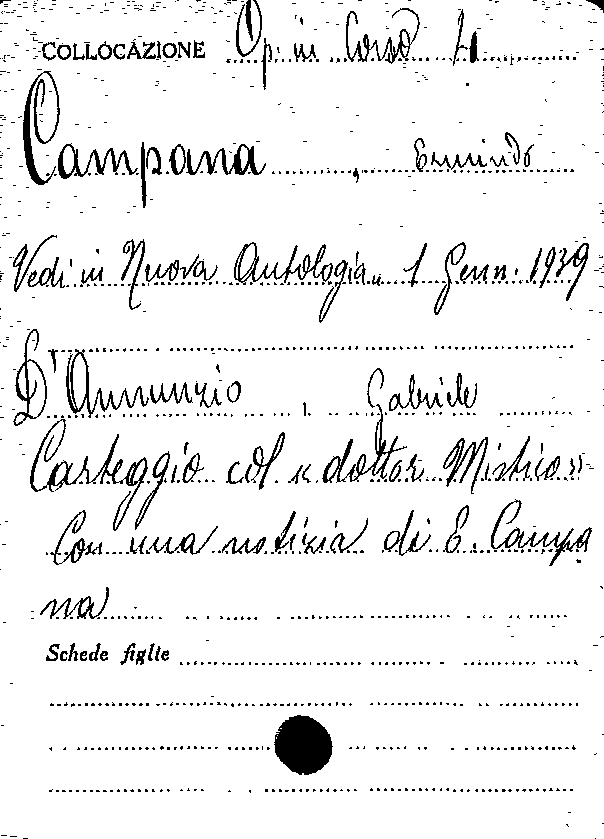 COLLOCAZIONE Op. in Corso 71
Campana, Ermindo
Vedi in Nuova Antologia„ 1 Genn. 1939
D'Annunzio, Gabriele
Carteggio col « dottor Mistico »
Con una notizia di E. Campa
na
Schede figlie